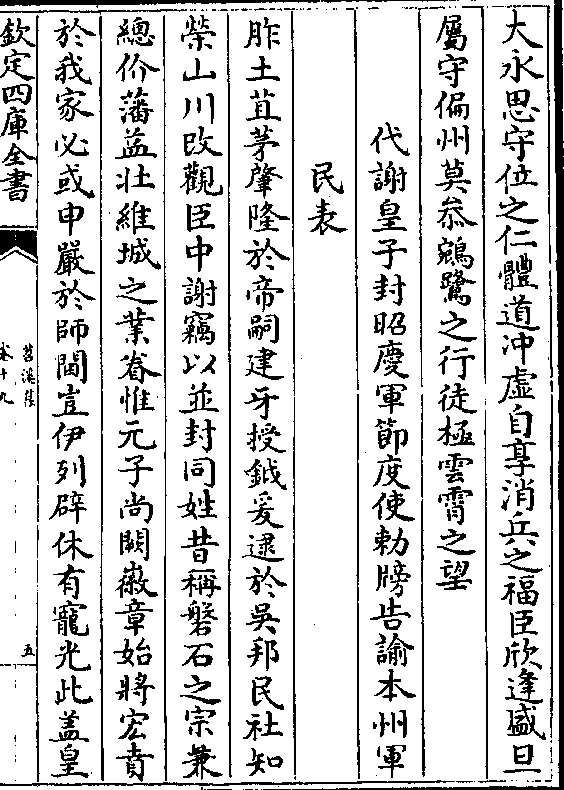 大永思守位之仁體道冲虚自享消兵之福臣欣逢盛旦
屬守偏州莫叅鵷鷺之行徒極雲霄之望
代謝皇子封昭慶軍節度使勅牓告諭本州軍
民表
胙土苴茅肇隆於帝嗣建牙授鉞爰逮於吳邦民社知
榮山川改觀臣中謝竊以並封同姓昔稱磐石之宗兼
總价藩益壯維城之業眷惟元子尚闕徽章始將宏賁
於我家必或申嚴於師閫豈伊列辟休有寵光此盖皇
欽定四庫全書
苕溪集
卷十九
五